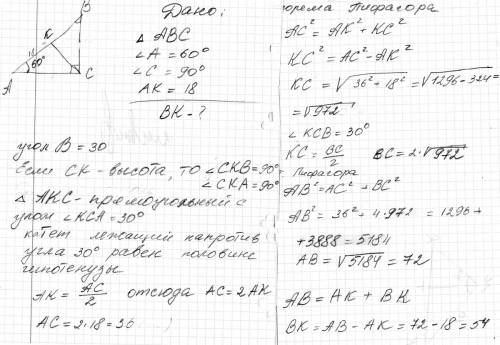 Дано:
△ ABC
∠A = 60°
∠C = 90°
AK = 18
BK - ?
B
K
18
60°
A
C
угол B = 30
Если CK - высота, то ∠CKB = 90°
∠CKA = 90°
△ AKC - прямоугольный с
углом ∠KCA = 30°
катет лежащий напротив
угла 30° равен половине
гипотенузы
AK = AC/2 отсюда AC = 2AK
AC = 2·18 = 36
орема Пифагора
AC² = AK² + KC²
KC² = AC² - AK²
KC = √36² - 18² = √1296 - 324 =
= √972
∠ KCB = 30°
KC = BC/2 BC = 2·√972
Пифагора
AB² = AC² + BC²
AB² = 36² + 4·972 = 1296 +
+ 3888 = 5184
AB = √5184 = 72
AB = AK + BK
BK = AB - AK = 72 - 18 = 54